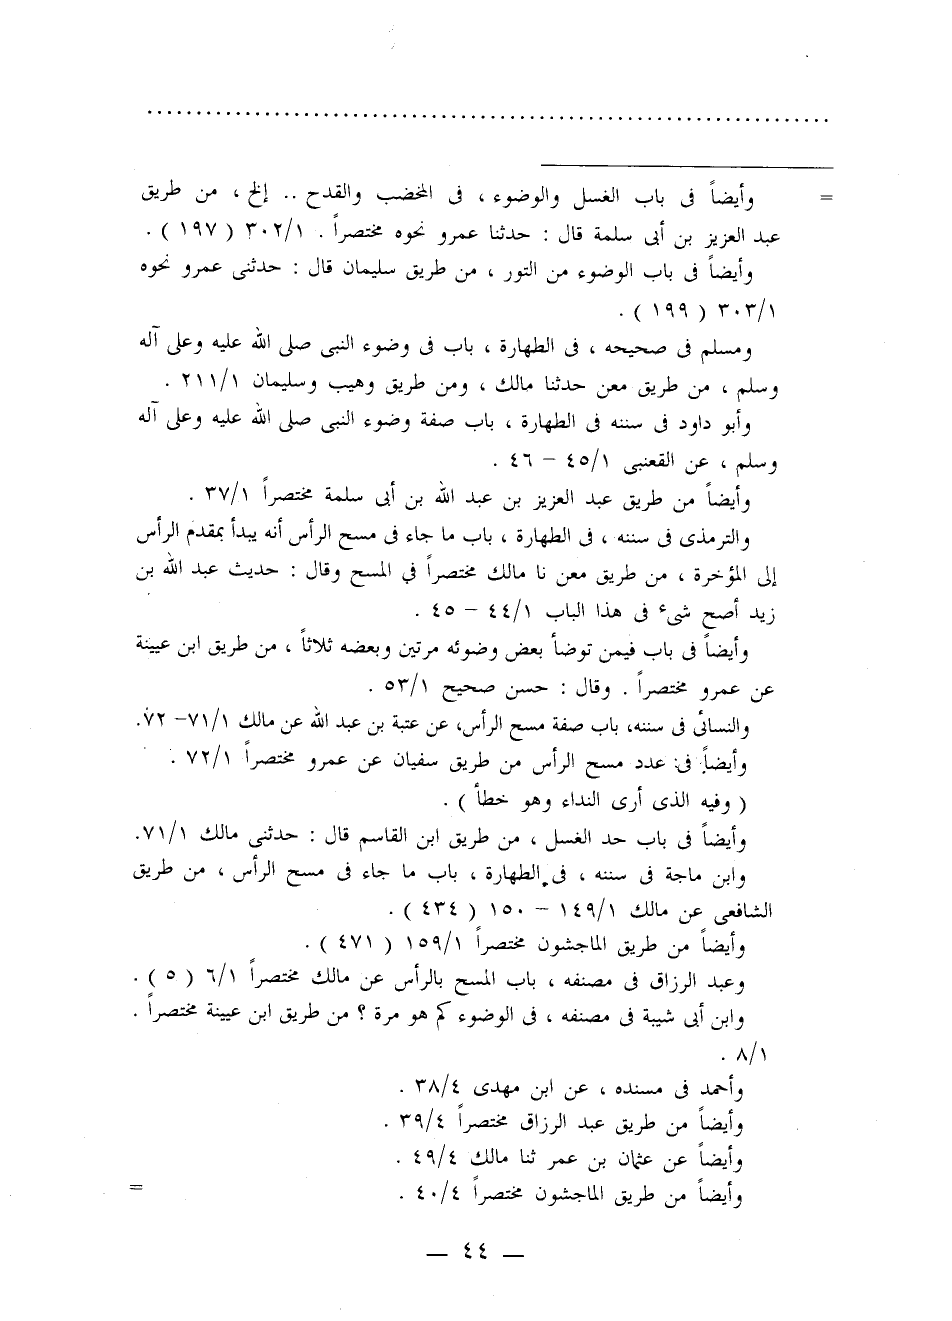 = وأيضاً فى باب الغسل والوضوء ، فى المخضب والقدح .. إلخ ، من طريق
عبد العزيز بن أبى سلمة قال : حدثنا عمرو نحوه مختصراً . ٣٠٢/١ ( ١٩٧ ) .
وأيضاً فى باب الوضوء من التور ، من طريق سليمان قال : حدثنى عمرو نحوه
٣٠٣/١ ( ١٩٩ ) .
ومسلم فى صحيحه ، فى الطهارة ، باب فى وضوء النبى صلى الله عليه وعلى آله
وسلم ، من طريق معن حدثنا مالك ، ومن طريق وهيب وسليمان ٢١١/١ .
وأبو داود فى سننه فى الطهارة ، باب صفة وضوء النبى صلى الله عليه وعلى آله
وسلم ، عن القعنبى ٤٥/١ – ٤٦ .
وأيضاً من طريق عبد العزيز بن عبد الله بن أبى سلمة مختصراً ٣٧/١ .
والترمذى فى سننه ، فى الطهارة ، باب ما جاء فى مسح الرأس أنه يبدأ بمقدم الرأس
إلى المؤخرة ، من طريق معن نا مالك مختصراً في المسح وقال : حديث عبد الله بن
زيد أصح شىء فى هذا الباب ٤٤/١ – ٤٥ .
وأيضاً فى باب فيمن توضأ بعض وضوئه مرتين وبعضه ثلاثاً ، من طريق ابن عيينة
عن عمرو مختصراً . وقال : حسن صحيح ٥٣/١ .
والنسائى فى سننه، باب صفة مسح الرأس، عن عتبة بن عبد الله عن مالك ٧١/١– ٧٢.
وأيضاً فى عدد مسح الرأس من طريق سفيان عن عمرو مختصراً ٧٢/١ .
( وفيه الذى أرى النداء وهو خطأ ) .
وأيضاً فى باب حد الغسل ، من طريق ابن القاسم قال : حدثنى مالك ٧١/١.
وابن ماجة فى سننه ، فى الطهارة ، باب ما جاء فى مسح الرأس ، من طريق
الشافعى عن مالك ١٤٩/١ – ١٥٠ ( ٤٣٤ ) .
وأيضاً من طريق الماجشون مختصراً ١٥٩/١ ( ٤٧١ ) .
وعبد الرزاق فى مصنفه ، باب المسح بالرأس عن مالك مختصراً ٦/١ ( ٥ ) .
وابن أبى شيبة فى مصنفه ، فى الوضوء كم هو مرة ؟ من طريق ابن عيينة مختصراً .
٨/١ .
وأحمد فى مسنده ، عن ابن مهدى ٣٨/٤ .
وأيضاً من طريق عبد الرزاق مختصراً ٣٩/٤ .
وأيضاً عن عثمان بن عمر ثنا مالك ٤٩/٤ .
وأيضاً من طريق الماجشون مختصراً ٤٠/٤ . =
— ٤٤ —